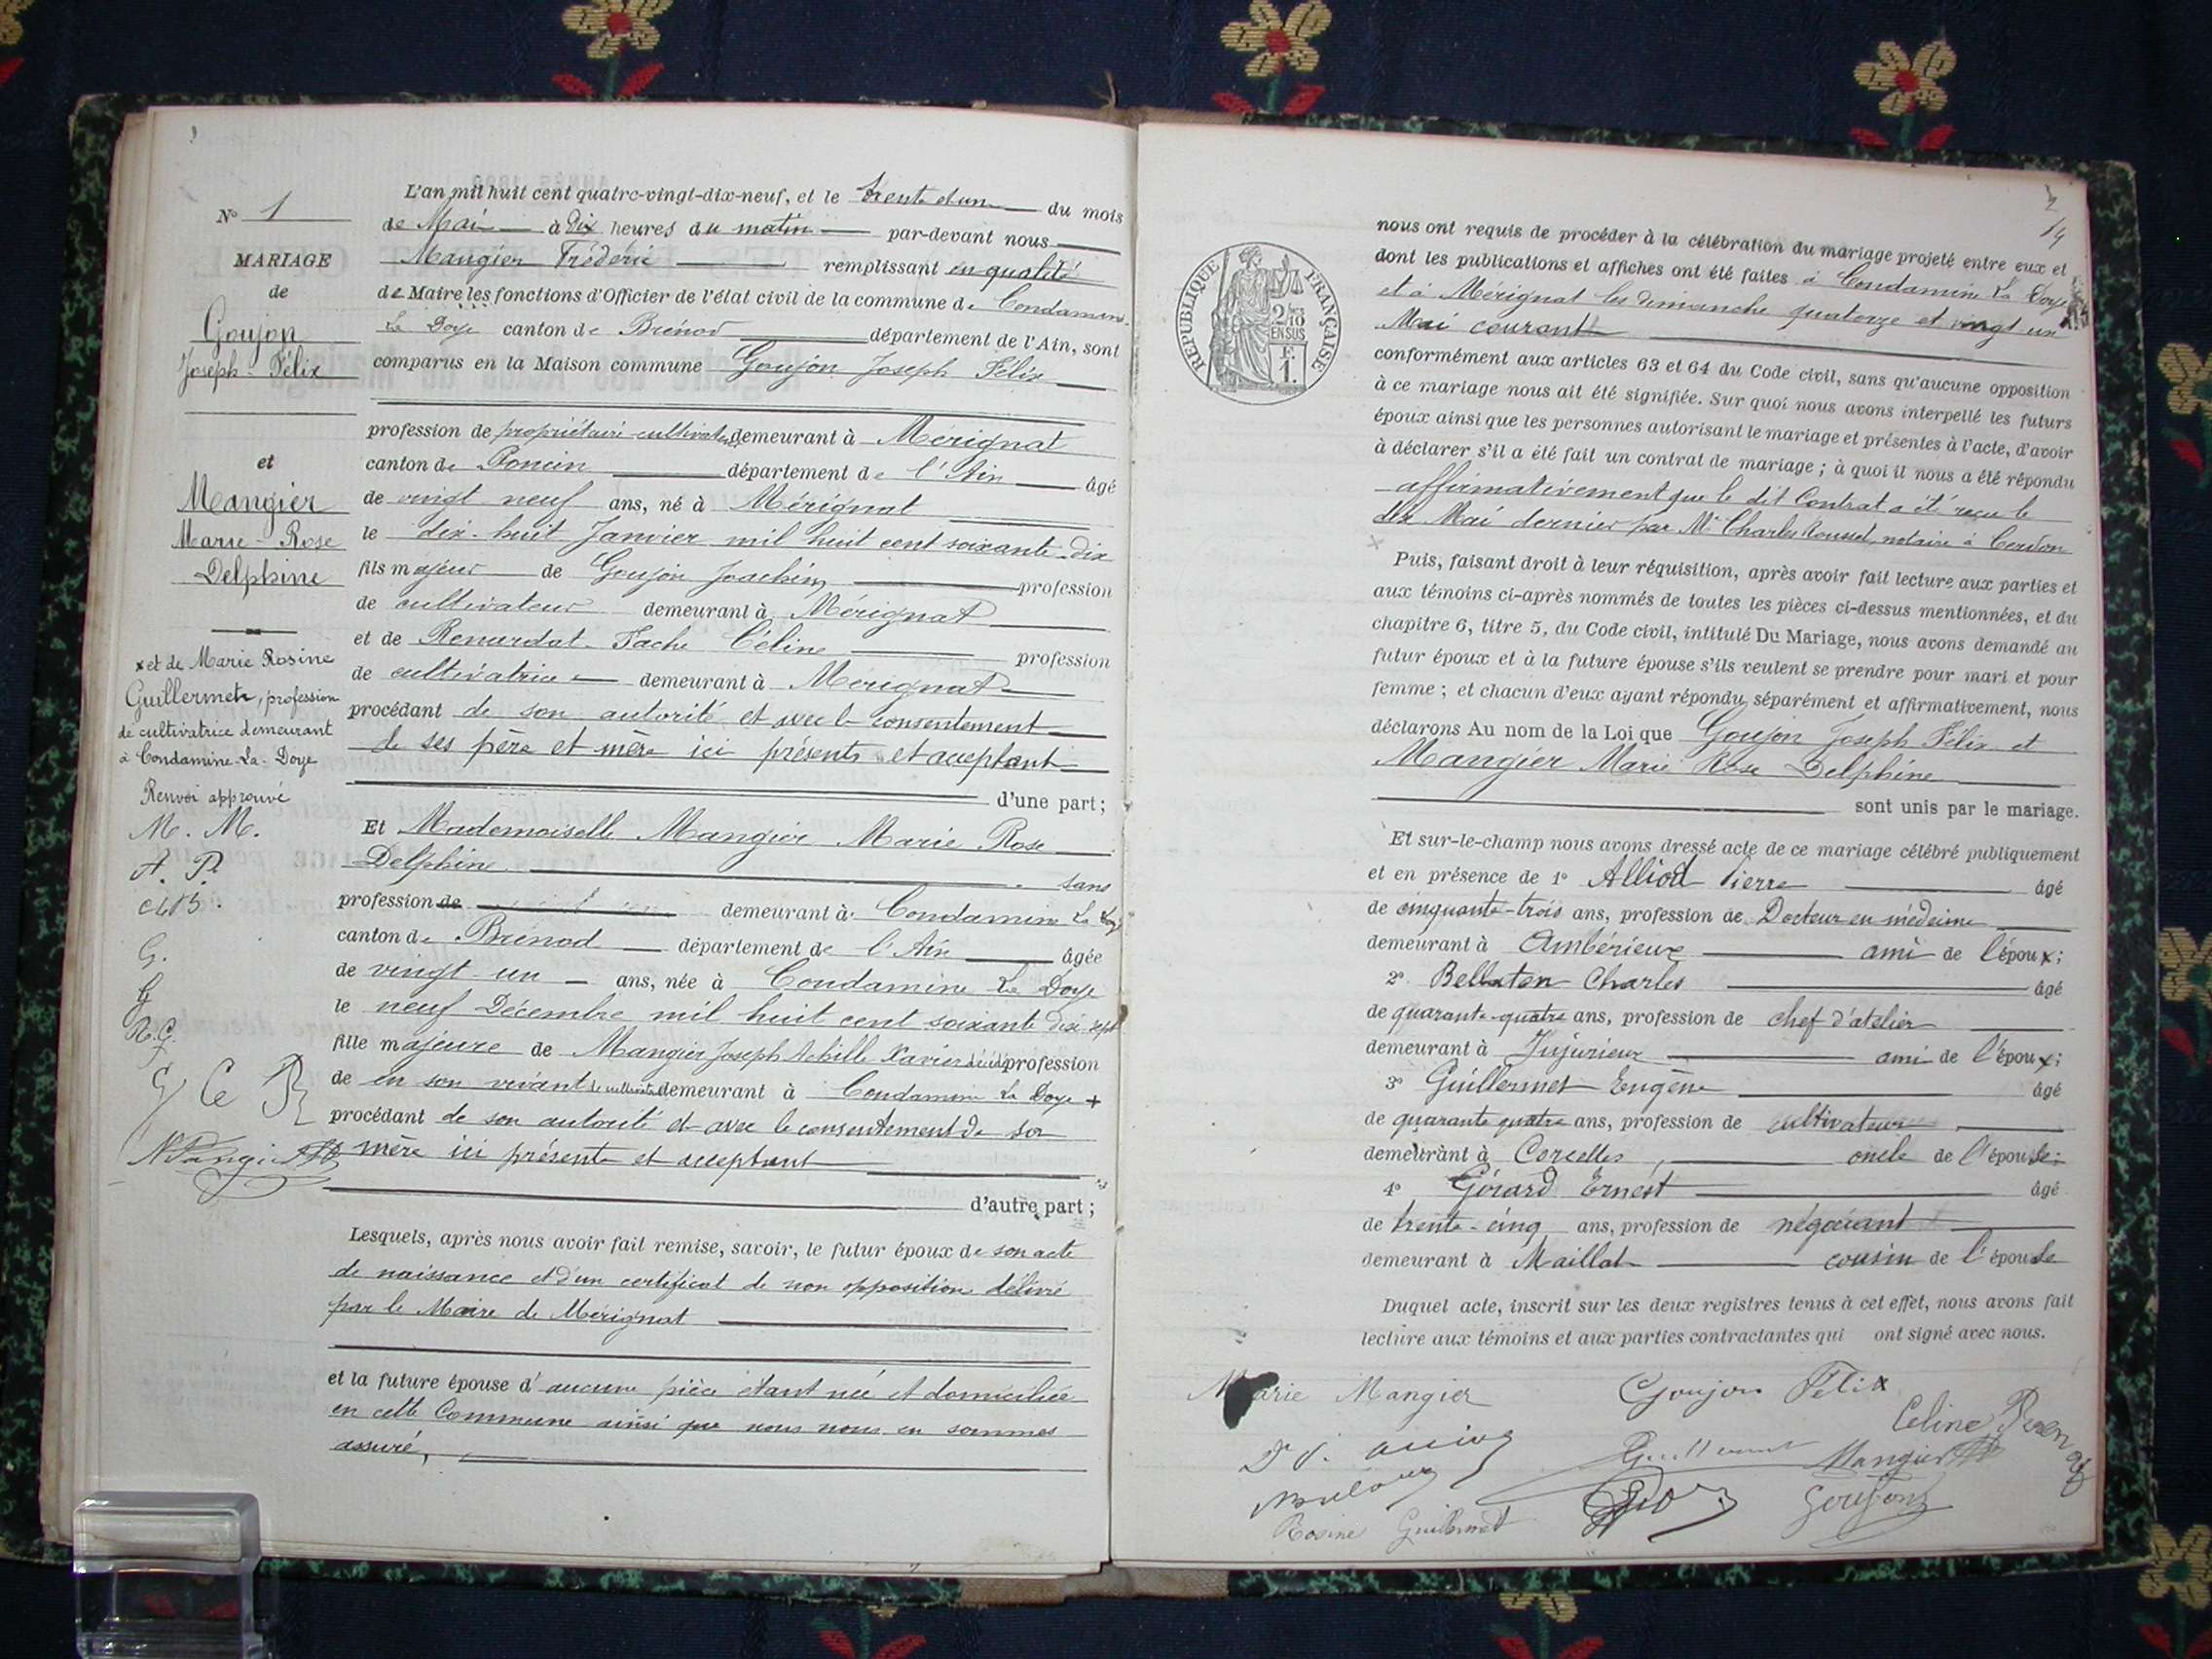 N° 1
MARIAGE
de
Goujon
Joseph-Félix
et
Mangier
Marie-Rose
Delphine
x et de Marie Rosine
Guillermet, profession
de cultivatrice demeurant
à Condamine-La-Doye
Renvoi approuvé
M. M.
A. P.
G.
G
R.G.
G Ce R
L'an mil huit cent quatre-vingt-dix-neuf, et le trente et un du mois
de Mai à Dix heures du matin par-devant nous
Mangier Frédéric remplissant en qualité
de Maire les fonctions d'Officier de l'état civil de la commune de Condamine-
La Doye canton de Brénod département de l'Ain, sont
comparus en la Maison commune Goujon Joseph Félix
profession de propriétaire-cultivateur demeurant à Mérignat
canton de Poncin département de l'Ain âgé
de vingt neuf ans, né à Mérignat
le dix-huit Janvier mil huit cent soixante-dix
fils majeur de Goujon Joachim profession
de cultivateur demeurant à Mérignat
et de Renardat-Fache Céline profession
de cultivatrice demeurant à Mérignat
procédant de son autorité et avec le consentement
de ses père et mère ici présents et acceptant
d'une part;
Et Mademoiselle Mangier Marie Rose
Delphine sans
profession de demeurant à Condamine La Doye
canton de Brénod département de l'Ain âgée
de vingt-un ans, née à Condamine La Doye
le neuf Décembre mil huit cent soixante dix-sept
fille majeure de Mangier Joseph Achille Xavier décédé profession
de en son vivant de cultivateur demeurant à Condamine La Doye +
procédant de son autorité et avec le consentement de sa
mère ici présente et acceptant
d'autre part;
Lesquels, après nous avoir fait remise, savoir, le futur époux de son acte
de naissance et d'un certificat de non opposition délivré
par le Maire de Mérignat
et la future épouse d'aucune pièce étant née et domiciliée
en cette Commune ainsi que nous nous en sommes
assuré,
2
REPUBLIQUE FRANÇAISE
2/10
EN SUS
F.
1.
nous ont requis de procéder à la célébration du mariage projeté entre eux et
dont les publications et affiches ont été faites à Condamine La Doye
et à Mérignat les dimanche quatorze et vingt un
Mai courant
conformément aux articles 63 et 64 du Code civil, sans qu'aucune opposition
à ce mariage nous ait été signifiée. Sur quoi nous avons interpellé les futurs
époux ainsi que les personnes autorisant le mariage et présentes à l'acte, d'avoir
à déclarer s'il a été fait un contrat de mariage; à quoi il nous a été répondu
affirmativement que le dit Contrat a été reçu le
dix Mai dernier par Me Charles Roussel, notaire à Cerdon
Puis, faisant droit à leur réquisition, après avoir fait lecture aux parties et
aux témoins ci-après nommés de toutes les pièces ci-dessus mentionnées, et du
chapitre 6, titre 5, du Code civil, intitulé Du Mariage, nous avons demandé au
futur époux et à la future épouse s'ils veulent se prendre pour mari et pour
femme; et chacun d'eux ayant répondu séparément et affirmativement, nous
déclarons Au nom de la Loi que Goujon Joseph Félix et
Mangier Marie Rose Delphine
sont unis par le mariage.
Et sur-le-champ nous avons dressé acte de ce mariage célébré publiquement
et en présence de 1° Alliod Pierre âgé
de cinquante-trois ans, profession de Docteur en médecine
demeurant à Ambérieux ami de l'époux;
2° Bellaton Charles âgé
de quarante-quatre ans, profession de chef d'atelier
demeurant à Jujurieux ami de l'époux;
3° Guillermet Eugène âgé
de quarante quatre ans, profession de cultivateur
demeurant à Corcelles, oncle de l'épouse;
4° Gérard Ernest âgé
de trente-cinq ans, profession de négociant
demeurant à Maillat cousin de l'épouse
Duquel acte, inscrit sur les deux registres tenus à cet effet, nous avons fait
lecture aux témoins et aux parties contractantes qui ont signé avec nous.
Marie Mangier Goujon Félix
Céline Renard
Guillermet Mangier
Rosine Guillermet Goujon